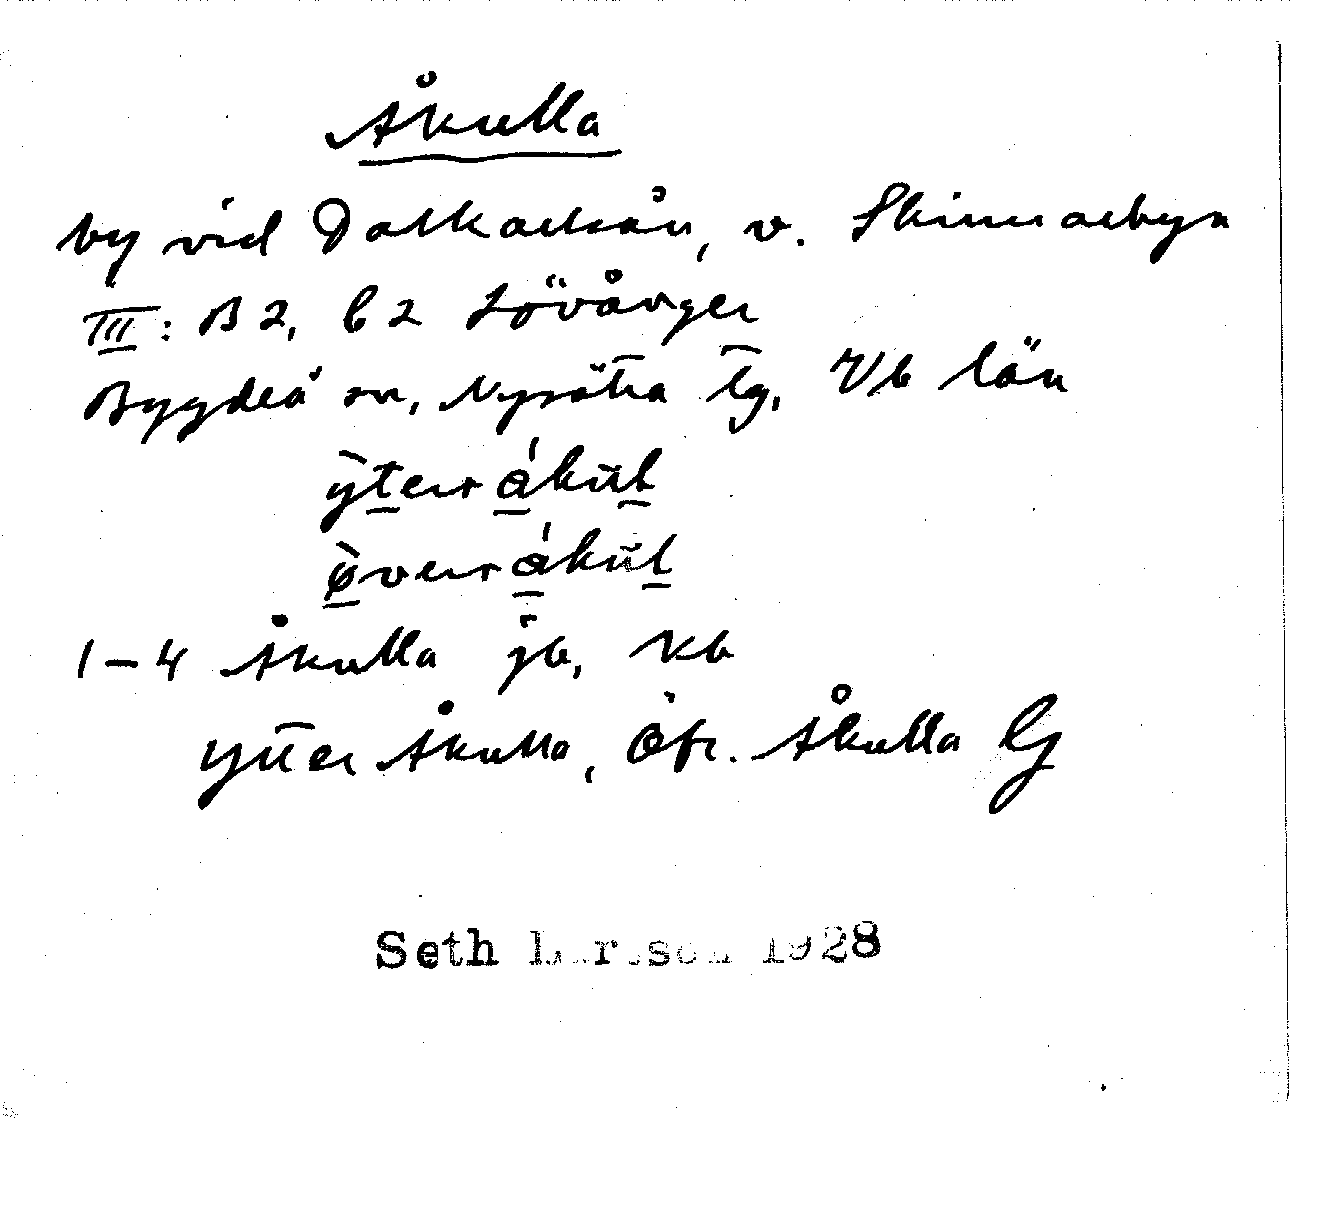 Åkulla
by vid Dalkarlsån, v. Skinnarbyn
III: B2, C2 Lövånger
Bygdeå sn, Nysätra tg, Vb län
1-4 Åkulla jb, kb
Ytter Åkulla, Öfr. Åkulla
Seth Larsson 1928